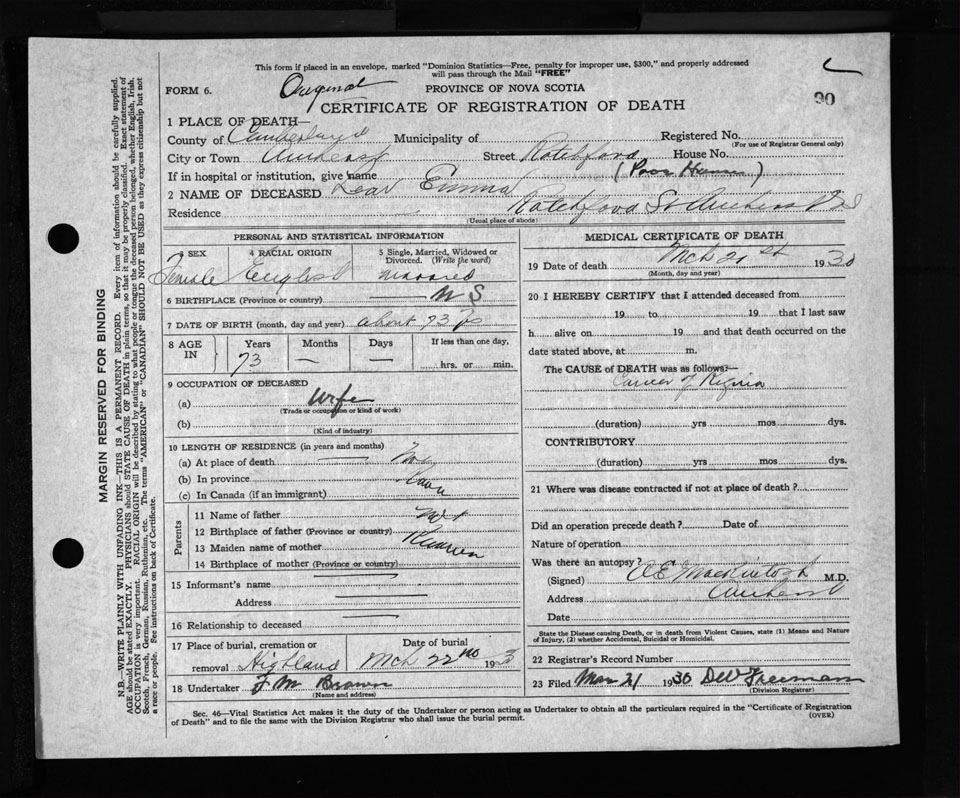 This form if placed in an envelope, marked "Dominion Statistics—Free, penalty for improper use, $300," and properly addressed
will pass through the Mail "FREE"
FORM 6. Original PROVINCE OF NOVA SCOTIA
90
CERTIFICATE OF REGISTRATION OF DEATH
1 PLACE OF DEATH—
County of Cumberland Municipality of Registered No.
(For use of Registrar General only)
City or Town Amherst Street Ratchford House No.
If in hospital or institution, give name (Poor House)
2 NAME OF DECEASED Lear Emma
Residence Ratchford St Amherst NS
(Usual place of abode)
PERSONAL AND STATISTICAL INFORMATION
3 SEX 4 RACIAL ORIGIN 5 Single, Married, Widowed or
Divorced. (Write the word)
Female English married
6 BIRTHPLACE (Province or country) N S
7 DATE OF BIRTH (month, day and year) about 73 
8 AGE IN Years Months Days If less than one day,
73 — — hrs. or min.
9 OCCUPATION OF DECEASED
(a) Wife
(Trade or occupation or kind of work)
(b)
(Kind of industry)
10 LENGTH OF RESIDENCE (in years and months)
(a) At place of death
(b) In province
(c) In Canada (if an immigrant)
Parents
11 Name of father Not
12 Birthplace of father (Province or country)
13 Maiden name of mother Known
14 Birthplace of mother (Province or country)
15 Informant's name
Address
16 Relationship to deceased
17 Place of burial, cremation or Date of burial
removal Highland Mch 22nd 193
18 Undertaker F M Brown
(Name and address)
MEDICAL CERTIFICATE OF DEATH
19 Date of death Mch 21 st 1930
(Month, day and year)
20 I HEREBY CERTIFY that I attended deceased from
19 to 19 that I last saw
h alive on 19 and that death occurred on the
date stated above, at m.
The CAUSE of DEATH was as follows:—
Cancer of
(duration) yrs mos dys.
CONTRIBUTORY
(duration) yrs mos dys.
21 Where was disease contracted if not at place of death?
Did an operation precede death? Date of
Nature of operation
Was there an autopsy?
(Signed) MacKintosh M.D.
Address Amherst
Date
State the Disease causing Death, or in death from Violent Causes, state (1) Means and Nature
of Injury, (2) whether Accidental, Suicidal or Homicidal.
22 Registrar's Record Number
23 Filed Mar 21 1930 Freeman
(Division Registrar)
Sec. 46—Vital Statistics Act makes it the duty of the Undertaker or person acting as Undertaker to obtain all the particulars required in the "Certificate of Registration
of Death" and to file the same with the Division Registrar who shall issue the burial permit.
(OVER)
MARGIN RESERVED FOR BINDING
N.B.—WRITE PLAINLY WITH UNFADING INK—THIS IS A PERMANENT RECORD. Every item of information should be carefully supplied.
AGE should be stated EXACTLY. PHYSICIANS should STATE CAUSE OF DEATH in plain terms, so that it may be properly classified. Exact statement of
OCCUPATION is very important. RACIAL ORIGIN will be described by stating to what people or tongue the deceased person belonged, whether English, Irish,
Scotch, French, German, Russian, Ruthenian, etc. The terms "AMERICAN" or "CANADIAN" SHOULD NOT BE USED as they express citizenship but not
a race or people. See instructions on back of Certificate.